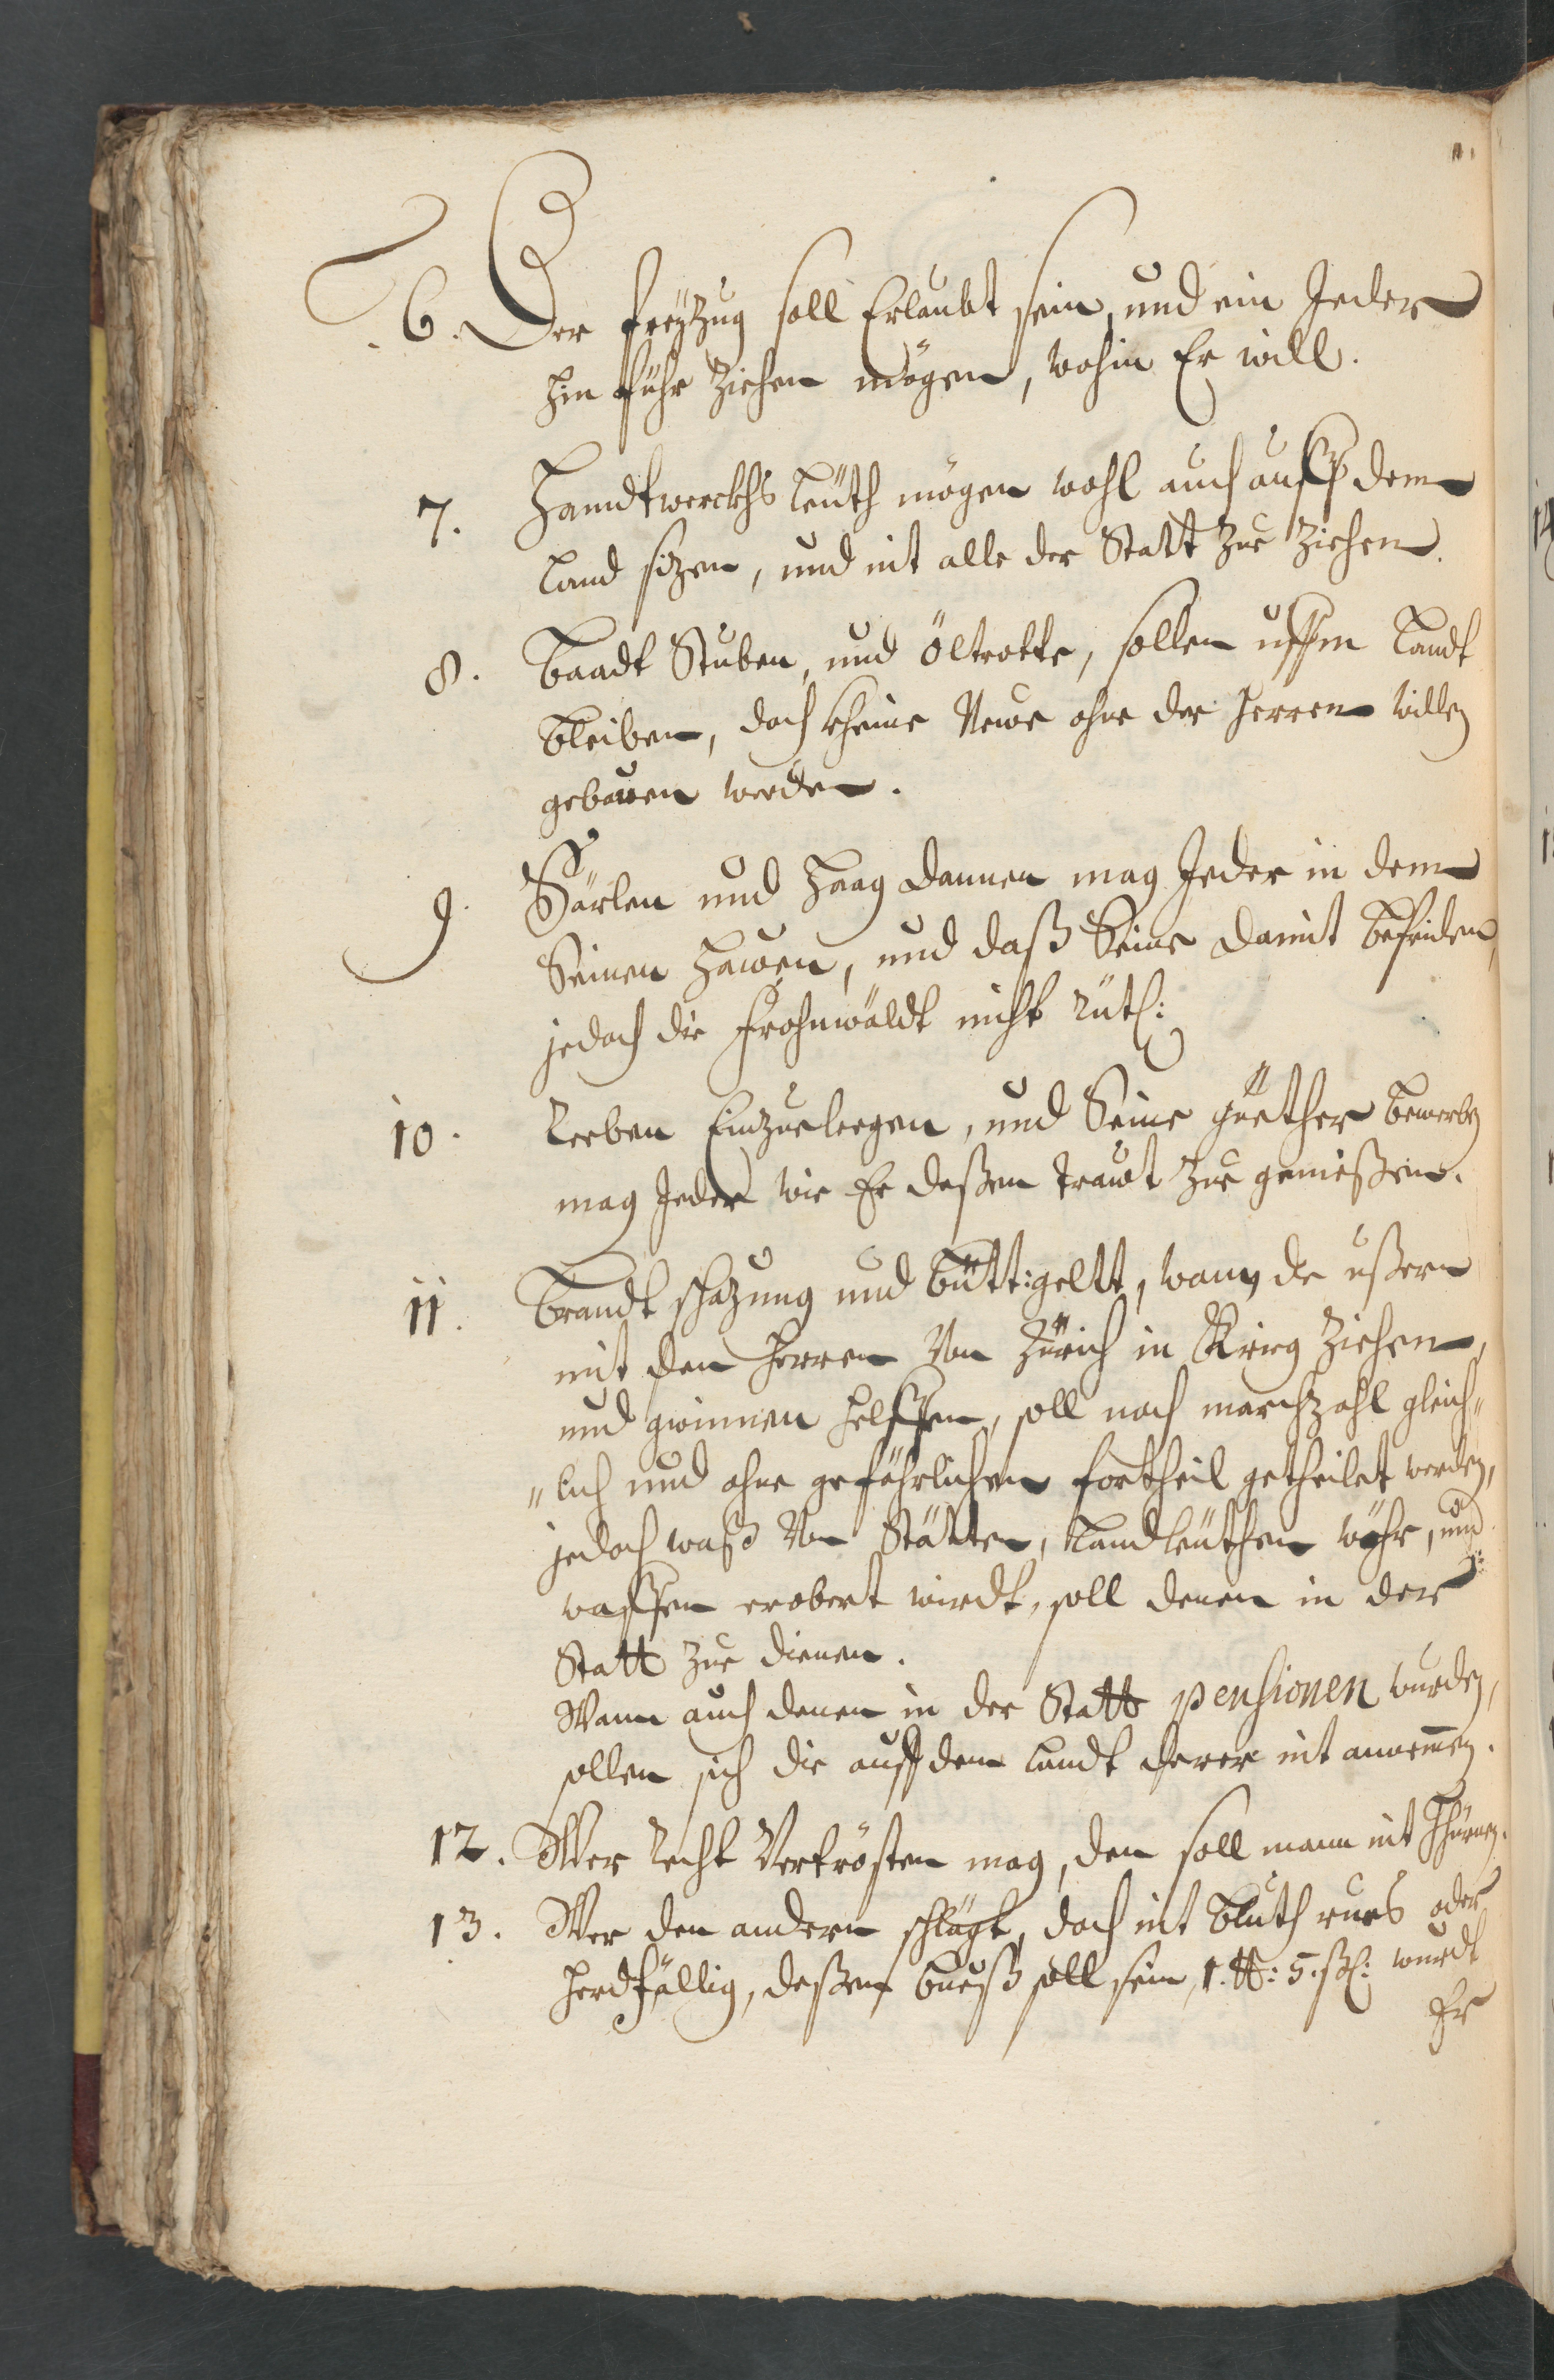 6. Der freÿzug soll Erlaubt sein, und ein Jeder
hin führ ziehen mögen, wohin Er will.
7. Handtwerckhs leüth mögen wohl auch auff dem
Land sizen, und nit alle der Statt zue ziehen.
8. Baadt Stuben, und Öltrotte, sollen uffem Landt
bleiben, doch kheine Newe ohne der Herren willen
gebawen werden.
9. Särlen und Haag dannen mag Jeder in dem
Seinen hawen, und daß Seine damit befriden,
jedoch die Frohnwäldt nicht rüth:
10. Reeben Einzueleegen, und Seine güether bewerben
mag Jeder wie Er deßen trawt zue genießen.
11. Brandt schazung und bütt:geltt, wann de ußern
mit den Herren Von Zürich in Krieg ziehen,
und gwinnen helffen, soll nach marchzahl gleich"
"lich und ohne gefährlichen fortheil getheilet werden,
jedoch waß Von Stätten, Landleüthen wöhr, und
waffen erobert wirdt, soll denen in der
Statt zue dienen.
Wann auch denen in der Statt pensionen wurden,
sollen sich die auff dem Landt derer nit annemmen.
12. Wer Recht Vertrösten mag, den soll mann nit thürnen.
13. Wer den andern schlägt, doch nit bluth runs oder
herdfällig, deßen bueß soll sein, 1. ℔: 5. ß: wurdt
Er